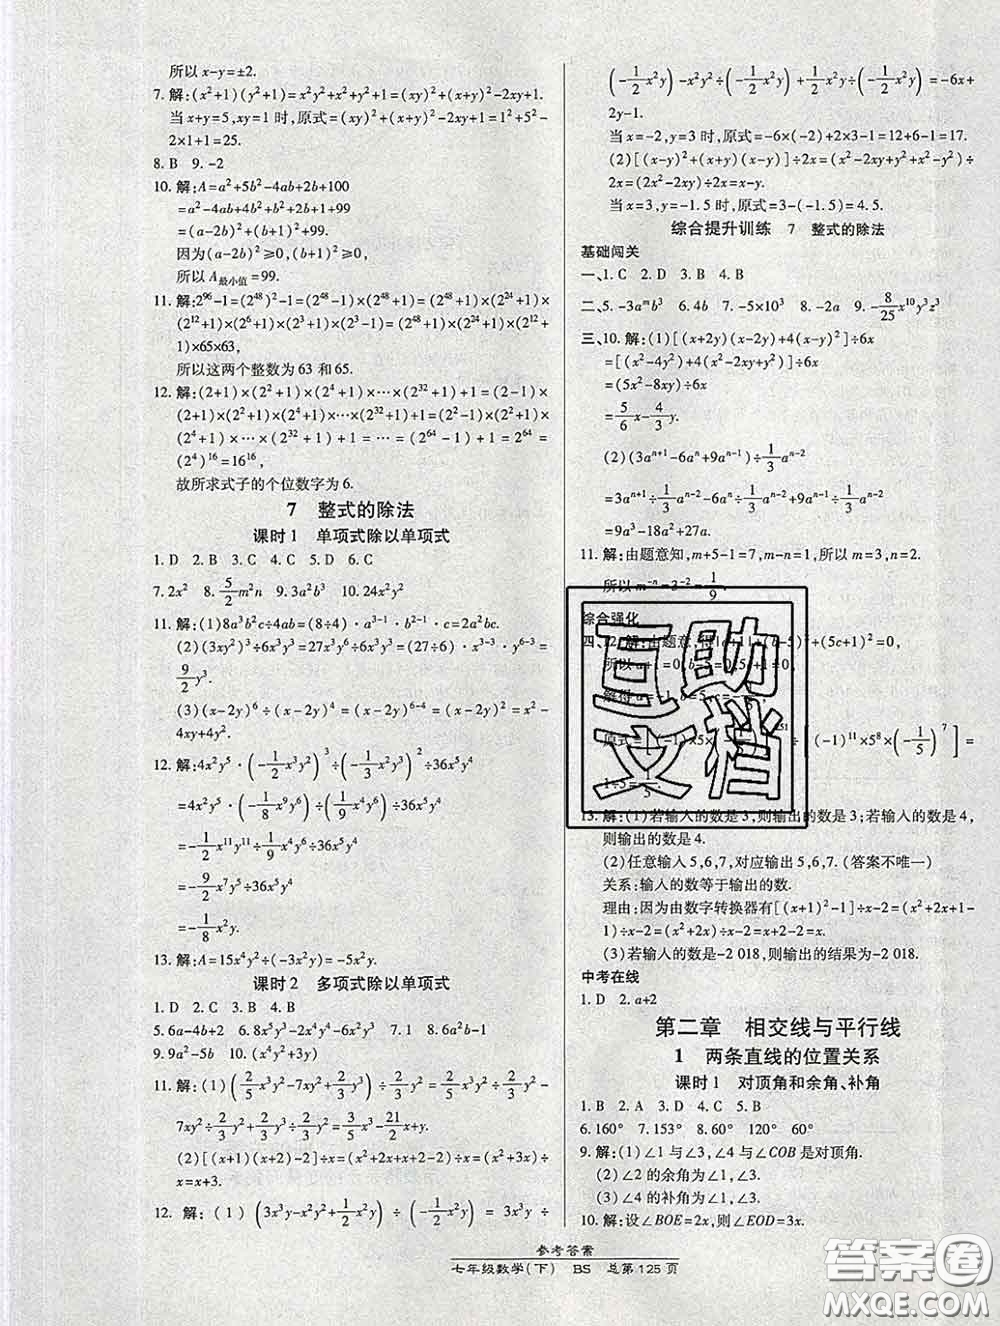 所以 x-y=±2.
7. 解:(x²+1)(y²+1)=x²y²+x²+y²+1=(xy)²+(x+y)²-2xy+1.
当 x+y=5,xy=1 时,原式=(xy)²+(x+y)²-2xy+1=1²+5²-
2×1+1=25.
8. B 9. -2
10. 解:A=a²+5b²-4ab+2b+100
=a²-4ab+4b²+b²+2b+1+99
=(a-2b)²+(b+1)²+99.
因为(a-2b)²≥0,(b+1)²≥0,
所以 A最小值=99.
11. 解:2⁹⁶-1=(2⁴⁸)²-1=(2⁴⁸+1)×(2⁴⁸-1)=(2⁴⁸+1)×(2²⁴+1)×
(2¹²+1)×(2⁶+1)×(2⁶-1)=(2⁴⁸+1)×(2²⁴+1)×(2¹²+
1)×65×63,
所以这两个整数为 63 和 65.
12. 解:(2+1)×(2²+1)×(2⁴+1)×…×(2³²+1)+1=(2-1)×
(2+1)×(2²+1)×(2⁴+1)×…×(2³²+1)+1=(2²-1)×(2²+1)×
(2⁴+1)×…×(2³²+1)+1=…=(2⁶⁴-1)+1=2⁶⁴=
(2⁴)¹⁶=16¹⁶,
故所求式子的个位数字为 6.
7 整式的除法
课时 1 单项式除以单项式
1. D 2. B 3. C 4. C 5. D 6. C
7. 2x² 8. 5/2 m²n 9. 3a²b³ 10. 24x²y²
11. 解:(1)8a³b²c÷4ab=(8÷4)·a³⁻¹·b²⁻¹·c=2a²bc.
(2)(3xy²)³÷6x³y³=27x³y⁶÷6x³y³=(27÷6)·x³⁻³·y⁶⁻³=
9/2 y³.
(3)(x-2y)⁶÷(x-2y)⁴=(x-2y)⁶⁻⁴=(x-2y)²=x²-
4xy+4y².
12. 解:4x²y⁵·(-1/2 x³y²)³÷(-1/2 x²y)²÷36x⁵y⁴
=4x²y⁵·(-1/8 x⁹y⁶)÷(1/4 x⁴y²)÷36x⁵y⁴
=-1/2 x¹¹y¹¹÷1/4 x⁴y²÷36x⁵y⁴
=-9/2 x⁷y⁵÷36x⁵y⁴
=-1/8 x²y.
13. 解:A=15x⁴y²÷(-3x²y)=-5x²y.
课时 2 多项式除以单项式
1. D 2. C 3. B 4. D
5. 6a-4b+2 6. 8x⁵y³-2x⁴y⁴-6x²y⁵ 7. 3 8. 6a²b-1
9. 9a²-5b 10. (2x³+3x²-10x)
11. 解:(1)(2/5 x³y²-7xy²+2/3 y³)÷2/3 y²=2/5 x³y²÷2/3 y²-
7xy²÷2/3 y²+2/3 y³÷2/3 y²=3/5 x³-21/2 x+y.
(2)[(x+1)(x+2)-2]÷x=(x²+2x+x+2-2)÷x=(x²+3x)÷
x=x+3.
12. 解:(1)(3x³y-x²y²+1/2 x²y)÷(-1/2 x²y)=3x³y÷
(-1/2 x²y)-x²y²÷(-1/2 x²y)+1/2 x²y÷(-1/2 x²y)=-6x+
2y-1.
当 x=-2,y=3 时,原式=-6×(-2)+2×3-1=12+6-1=17.
(2)[(x-y)²+(x+y)(x-y)]÷2x=(x²-2xy+y²+x²-y²)÷
2x=(2x²-2xy)÷2x=x-y.
当 x=3,y=-1.5 时,原式=3-(-1.5)=4.5.
综合提升训练 7 整式的除法
基础闯关
一、1. C 2. D 3. B 4. B
二、5. -3aᵐb³ 6. 4b 7. -5×10³ 8. -2a 9. -8/25 x¹⁰y³z³
三、10. 解:(1)[(x+2y)(x-2y)+4(x-y)²]÷6x
=[(x²-4y²)+4(x²-2xy+y²)]÷6x
=(5x²-8xy)÷6x
=5/6 x-4/3 y.
(2)(3aⁿ⁺¹-6aⁿ+9aⁿ⁻¹)÷1/3 aⁿ⁻²
=3aⁿ⁺¹÷1/3 aⁿ⁻²-6aⁿ÷1/3 aⁿ⁻²+9aⁿ⁻¹÷1/3 aⁿ⁻²
=9a³-18a²+27a.
11. 解:由题意知,m+5-1=7,m-n=1,所以 m=3,n=2.
所以 m⁻ⁿ=3⁻²=1/9.
综合强化
四、12. 解:由题意,得 +(5c+1)²=0,
所以
解得
原式= ÷[(-1)¹¹×5⁸×(-1/5)⁷]=
13. 解:(1)若输入的数是 3,则输出的数是 3;若输入的数是 4,
则输出的数是 4.
(2)任意输入 5,6,7,对应输出 5,6,7.(答案不唯一)
关系:输入的数等于输出的数.
理由:因为由数字转换器有[(x+1)²-1]÷x-2=(x²+2x+1-
1)÷x-2=(x²+2x)÷x-2=x+2-2=x.
(3)若输入的数是-2 018,则输出的结果为-2 018.
中考在线
1. D 2. a+2
第二章 相交线与平行线
1 两条直线的位置关系
课时 1 对顶角和余角、补角
1. B 2. A 3. D 4. C 5. B
6. 160° 7. 153° 8. 60° 120° 60°
9. 解:(1)∠1 与∠3,∠4 与∠COB 是对顶角.
(2)∠2 的余角为∠1,∠3.
(3)∠4 的补角为∠1,∠3.
10. 解:设∠BOE=2x,则∠EOD=3x.
互助
文档
参考答案
七年级数学(下) BS 总第 125 页
答案圈
MXQE.COM